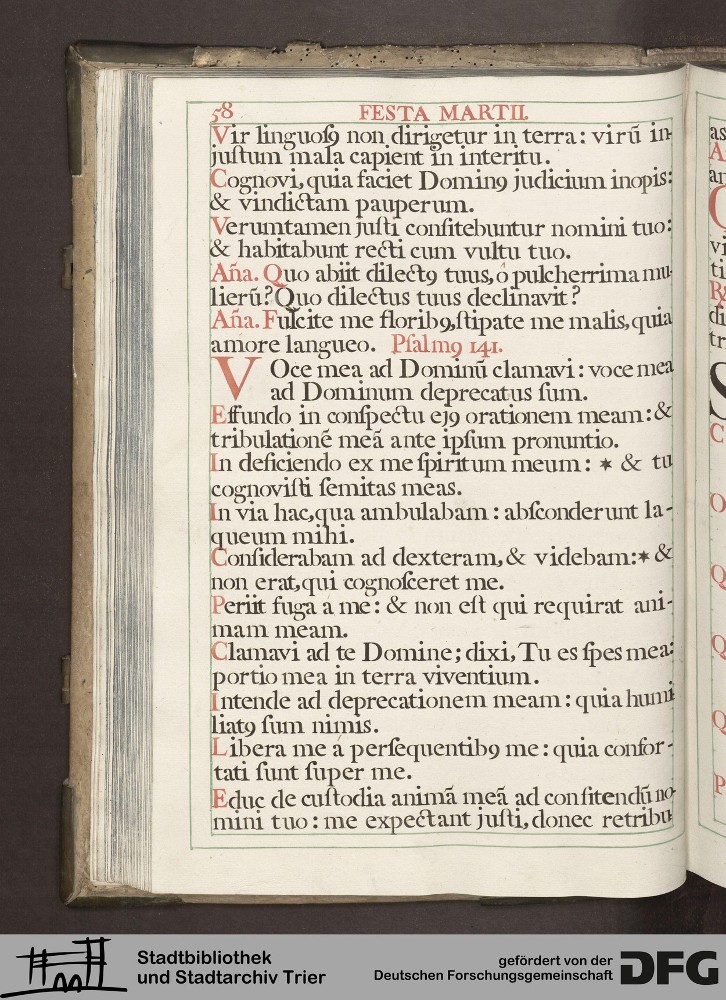 58 FESTA MARTII.
Vir linguoſꝰ non dirigetur in terra: virũ in-
juſtum mala capient in interitu.
Cognovi, quia faciet Dominꝰ judicium inopis:
& vindictam pauperum.
Verumtamen juſti confitebuntur nomini tuo:
& habitabunt recti cum vultu tuo.
Aña. Quo abiit dilectꝰ tuus, ó pulcherrima mu-
lierũ? Quo dilectus tuus declinavit?
Aña. Fulcite me floribꝰ, ſtipate me malis, quia
amore langueo. Pſalmꝰ 141.
VOce mea ad Dominũ clamavi: voce mea
ad Dominum deprecatus ſum.
Effundo in conſpectu ejꝰ orationem meam: &
tribulationẽ meã ante ipſum pronuntio.
In deficiendo ex me ſpiritum meum: * & tu
cognoviſti ſemitas meas.
In via hac, qua ambulabam: abſconderunt la-
queum mihi.
Conſiderabam ad dexteram, & videbam: * &
non erat, qui cognoſceret me.
Periit fuga a me: & non eſt qui requirat ani-
mam meam.
Clamavi ad te Domine; dixi, Tu es ſpes mea:
portio mea in terra viventium.
Intende ad deprecationem meam: quia humi-
liatꝰ ſum nimis.
Libera me á perſequentibꝰ me: quia confor-
tati ſunt ſuper me.
Educ de cuſtodia animã meã ad confitendũ no-
mini tuo: me expectant juſti, donec retribu-
Stadtbibliothek
und Stadtarchiv Trier
gefördert von der
Deutschen Forschungsgemeinschaft
DFG